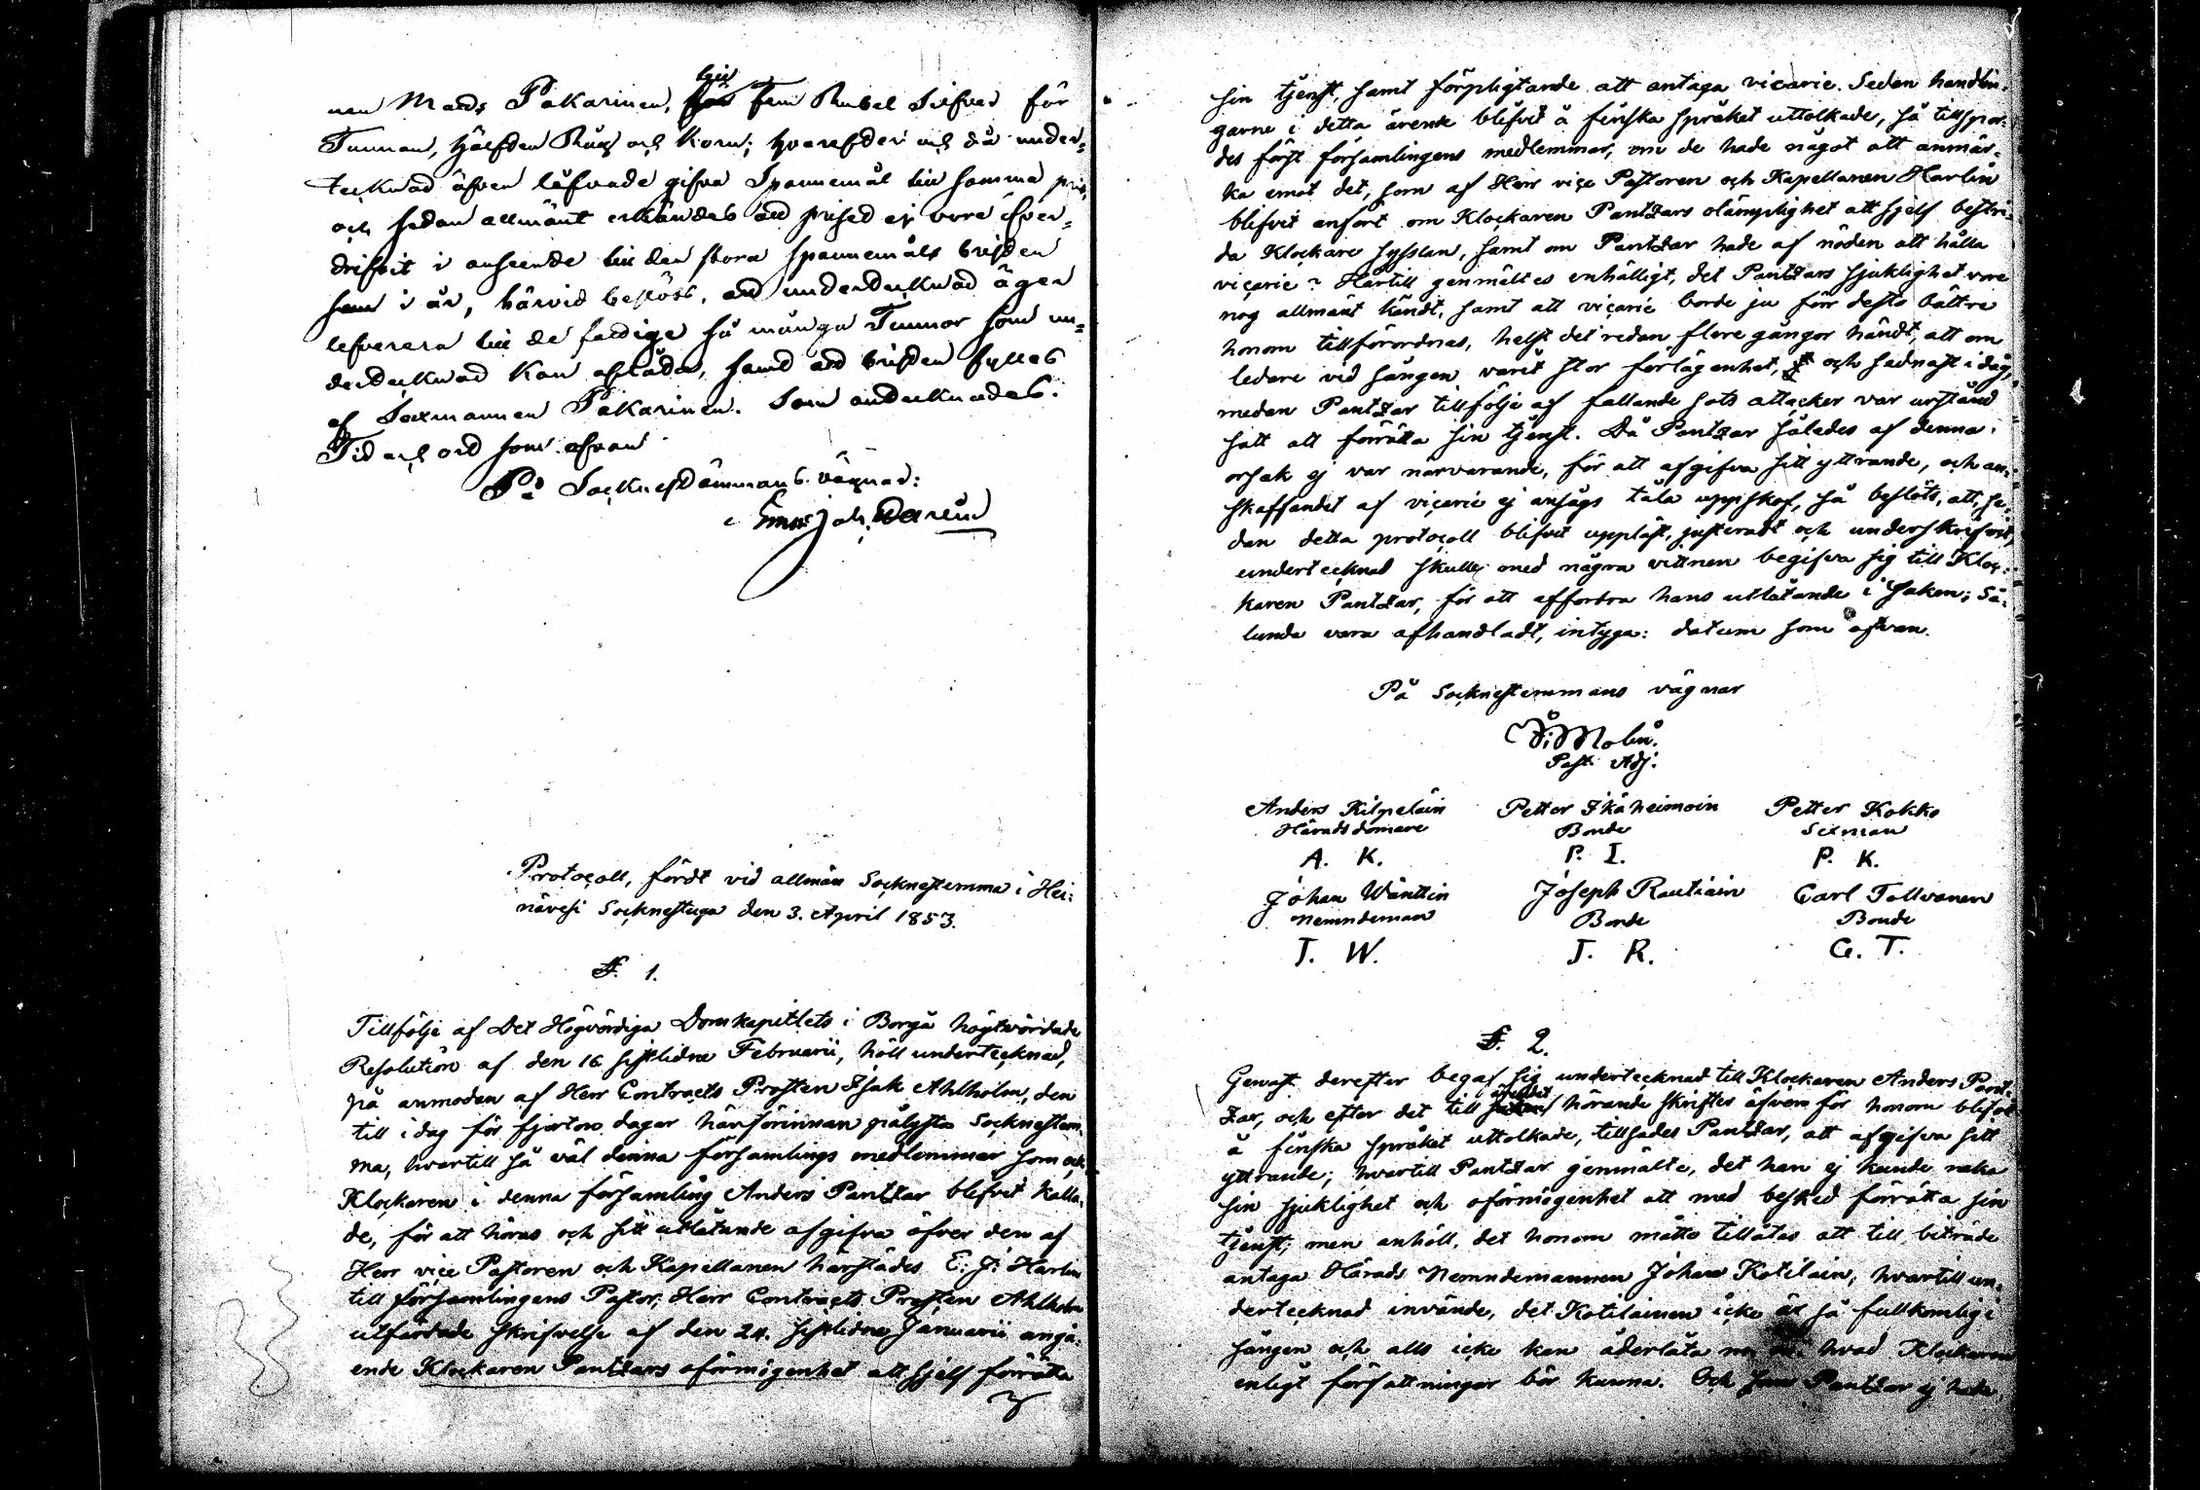 nen Mads Pakarinen, till fem Rubel Silfver för
Tunnan, hälften Råg och Korn; hvarefter och då under-
tecknad äfven låfvade gifva Spannemål till samma pris,
och sedan allmänt erkändes att priset ej vore öfver-
drifvit i anseende till den stora spannemåls bristen
som i år, härvid beslöts, att undertecknad äger
lefverera till de fattige så många Tunnor som un-
dertecknad kan aflåta, samt att bristen fylles
af Sexmannen Pakarinen. Som antecknades.
Tid och ort som ofvan
På Socknestämmans vägnar:
Joh.
Protocoll, fördt vid allmän Socknestemma i Hei-
nävesi Socknestuga den 3. April 1853.
§. 1.
Tillfölje af Det Högvördiga Domkapitlets i Borgå högtvördade
Resolution af den 16 sistlidne Februarii, höll undertecknad,
på anmodan af Herr Contracts Prosten Isak Ahlholm, den
till i dag för fjorton dagar härförinnan pålysta Socknestem-
ma, hvartill så väl denna församlings medlemmar som ock
Klockaren i denna församling Anders Pantzar blifvit kalla-
de, för att höras och sitt utlåtande afgifva öfver den af
Herr vice Pastoren och Kapellanen härstädes E. J. Harlin
till församlingens Pastor, Herr Contracts Prosten Ahlholm
utfärdade skrifvelse af den 24. sistlidne Januarii angå-
ende Klockaren Pantzars oförmögenhet att sjelf förrätta
sin tjenst, samt förpligtande att antaga vicarie. Sedan handlin-
garne i detta ärende blifvit å finska språket uttolkade, så tillspor-
des först församlingens medlemmar, om de hade något att anmär-
ka emot det, som af Herr vice Pastoren och Kapellanen Harlin
blifvit anfört om Klockaren Pantzars olämplighet att sjelf bestri-
da Klockare sysslan, samt om Pantzar hade af nöden att hålla
vicarie? Härtill genmältes enhälligt, det Pantzars sjuklighet vore
nog allmänt kändt, samt att vicarie borde ju förr desto bättre
honom tillförordnas, helst det redan flere gångor händt, att om
ledare vid sången varit stor förlägenhet, och sednast i dag,
medan Pantzar tillfölje af fallande sots attacker var urstånd
satt att förrätta sin tjenst. Då Pantzar således af denna
orsak ej var närvarande, för att afgifva sitt yttrande, och an-
skaffandet af vicarie ej ansågs tåla uppskof, så beslöts, att, se-
dan detta protocoll blifvit uppläst, justeradt och underskrifvit,
undertecknad skulle med några vittnen begifva sig till Kloc-
karen Pantzar, för att affordra hans utlåtande i saken; Så-
lunda vara afhandladt, intyga: datum som ofvan.
På Socknestemmans vägnar
Molin.
Past. Adj.
Anders Kilpeläin Petter Ikäheimoin Petter Kokko
Häradsdomare Bonde Sexman
A. K. P. I. P. K.
Johan Wänttin Joseph Rautiain Carl Tollvanen
Nemndeman Bonde Bonde
J. W. J. R. C. T.
§. 2.
Genast derefter begaf sig undertecknad till Klockaren Anders Pant-
zar, och efter det till ärendet hörande skrifter äfven för honom blifvit
å finska språket uttolkade, tillsades Pantzar, att afgifva sitt
yttrande; hvartill Pantzar genmälte, det han ej kunde neka
sin sjuklighet och oförmögenhet att med besked förrätta sin
tjenst; men anhöll, det honom måtte tillåtas att till biträde
antaga Härads Nemndemannen Johan Kotilain, hvartill un-
dertecknad invände, det Kotilainen icke är så fullkomlig i
sången och alls icke kan åderlåta hvad Klockaren
enligt författningar bör kunna. Och som Pantzar ej hade